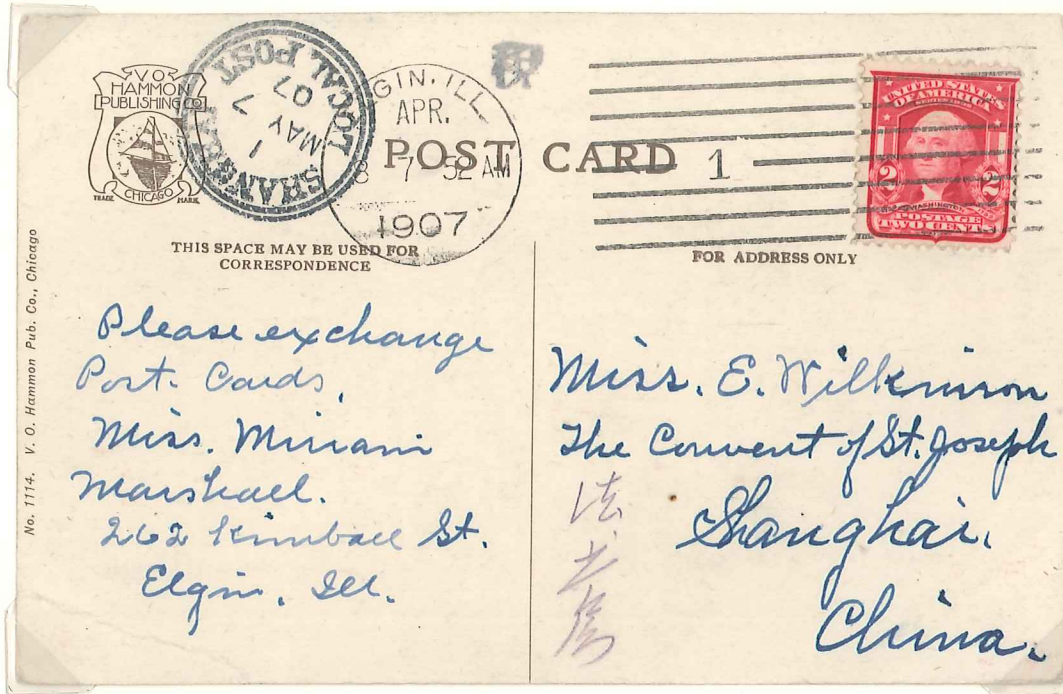 V O
HAMMON
PUBLISHING CO
CHICAGO
TRADE MARK
SHANGHAI LOCAL POST
1
MAY 7
07
ELGIN, ILL.
APR.
8 7 52 AM
1907
1
POST CARD
UNITED STATES
OF AMERICA
2 2
WASHINGTON
POSTAGE
TWO CENTS
THIS SPACE MAY BE USED FOR
CORRESPONDENCE
FOR ADDRESS ONLY
No. 1114. V. O. Hammon Pub. Co., Chicago
Please exchange
Post. Cards.
Miss. Miriam
Marshall.
262 Kimball St.
Elgin, Ill.
Miss. E. Wilkinson
The Convent of St. Joseph
Shanghai.
China.
法